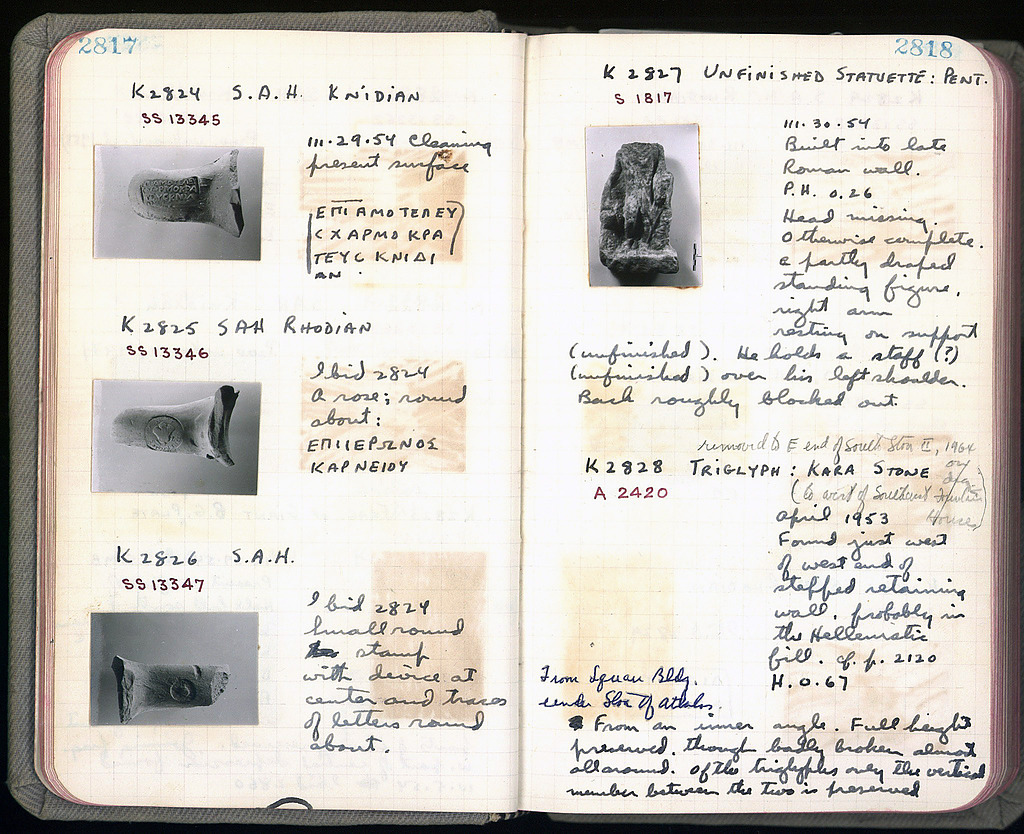 2817
K 2824 S.A.H. KNIDIAN
SS 13345
III.29.54 Cleaning
present surface
ΕΠΙ ΑΜΟΤΕΛΕΥ
C ΧΑΡΜΟΚΡΑ
ΤΕΥC ΚΝΙΔΙ
ΑΝ
K 2825 SAH RHODIAN
SS 13346
Ibid 2824
A rose; round
about:
ΕΠΙΙΕΡΩΝΟΣ
ΚΑΡΝΕΙΟΥ
K 2826 S.A.H.
SS 13347
Ibid 2824
Small round
stamp
with device at
center and traces
of letters round
about.
2818
K 2827 UNFINISHED STATUETTE: PENT.
S 1817
III.30.54
Built into late
Roman wall.
P.H. 0.26
Head missing.
Otherwise complete.
a partly draped
standing figure,
right arm
resting on support
(unfinished). He holds a staff (?)
(unfinished) over his left shoulder.
Back roughly blocked out.
removed to E end of South Stoa II, 1964
K 2828 TRIGLYPH: KARA STONE
A 2420
(to west of Southeast Fountain
House)
April 1953
Found just west
of west end of
stepped retaining
wall, probably in
the Hellenistic
fill. cf. p. 2120
H. 0.67
From Square Bldg.
under Stoa of Attalos.
From an inner angle. Full height
preserved, though badly broken almost
all around. Of the triglyphs only the vertical
member between the two is preserved